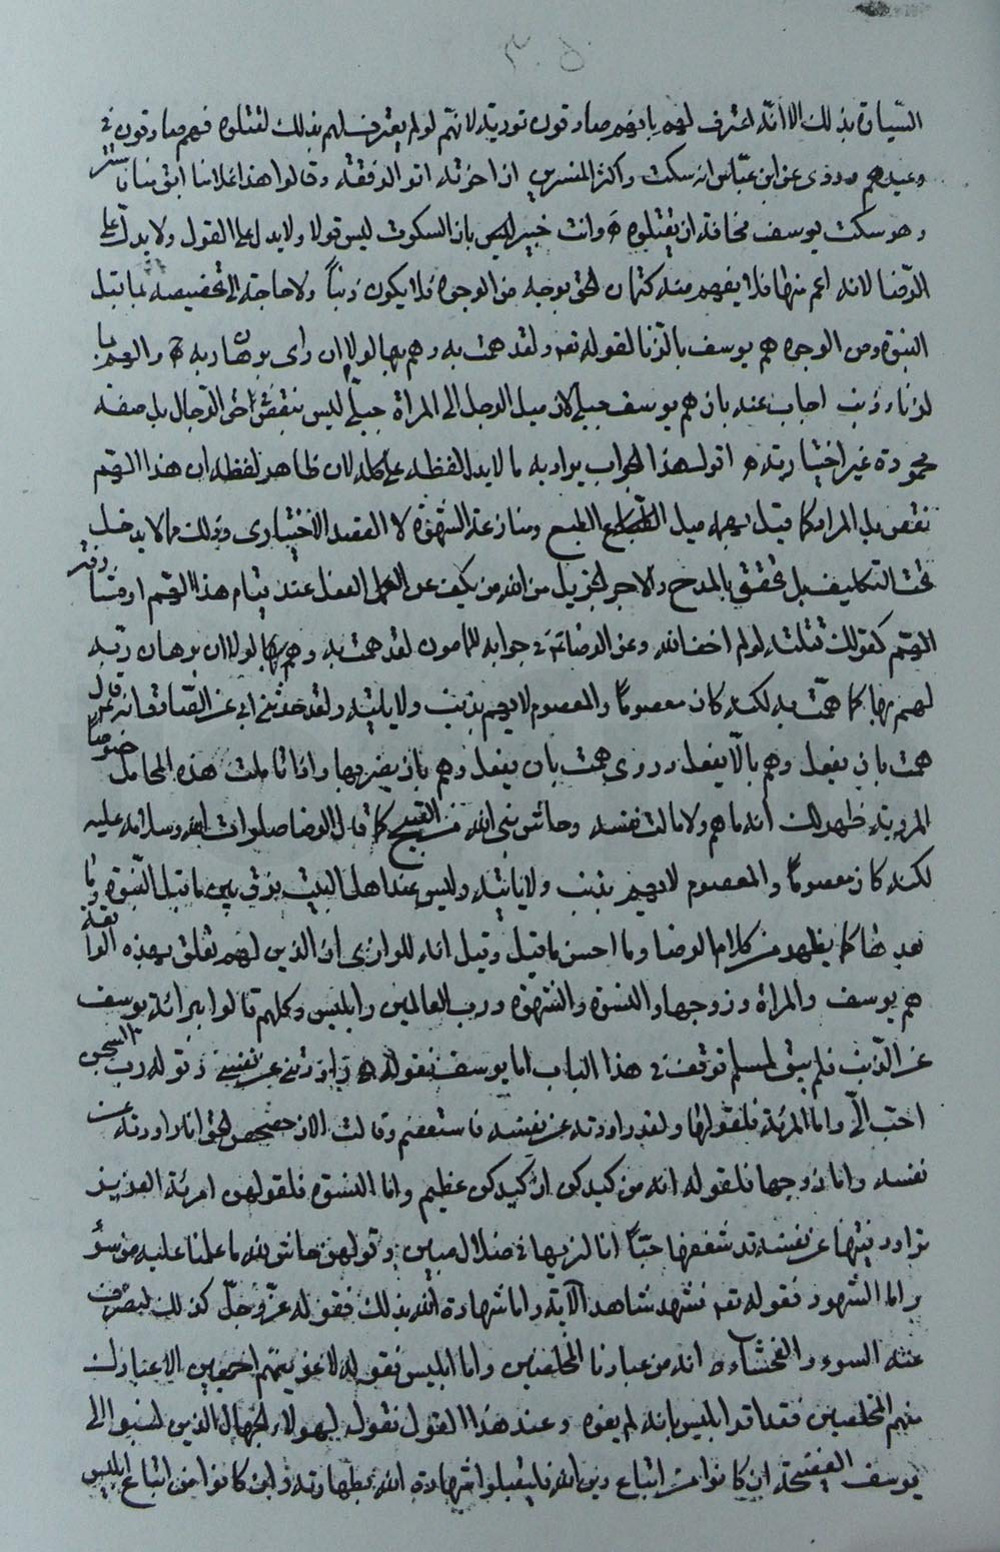 ٣٠٥
السّيارة بذلك الا انّه اعترف لهم بانهم صادقون تورية لانهم لو لم يعترف لهم بذلك لقتلوه فهم صادقون في
وعيدهم وروى عن ابن عباس انه سكت واكثر المفسرين ان اخوته اتو الرفقة وقالوا هذا غلامنا ابق منا
وهو سكت يوسف مخافة ان يقتلوه وانت خبير بان السكوت ليس قولا ولا يدل على القول ولا يدل على
الرّضا لانه اعم منها فلا يفهم منه كتمان الحق بوجه من الوجوه فلا يكون ذنباً ولا حاجة الى تخصيصه بما قبل
النبوة ومن الوجوه هم يوسف بالزنا لقوله تعه ولقد همت به وهم بها لولا ان راى برهان ربه والهم با
لزنا ذنب اجاب عنه بان هم يوسف جبلي لان ميل الرجل الى المراة جبلّي ليس بنقص في حق الرجال بل صفة
محمودة غير اختيارية اقول هذا الجواب يراد به ما لا يدل لفظه عليه لان ظاهر لفظه ان هذا الهم
نقص بل المراد كما قيل بهمه ميل الطبع ومنازعة الشهوة لا القصد الاختيارى وذلك مما لا يدخل
تحت التكليف بل تحقق بالمدح والاجر الجزيل من الله من يكف عن الفعل عند قيام هذا الهم او مشارفة
الهم كقولك قتلته لو لم اخف الله وعن الرضا في جوابه للمامون لقد همت به وهم بها لولا ان برهان ربه
لهم بها كما همّت به لكنه كان معصوماً والمعصوم لا يهم بذنب ولا ياتيه ولقد حدثني ابي عن الصّادق انه قال
همت بان يفعل وهم بالّا يفعل وروى همت بان يفعل وهم بان يضربها واذا تاملت هذه المحامل خصوصاً
المروية ظهر لك انه ما هم ولا مالت نفسه وحاش نبى الله من القبيح كما قال الرضا صلوات الله وسلامه عليه
لكنه كان معصوماً والمعصوم لا يهم بذنب ولا ياتيه وليس عند اهل البيت فرق بين ما قبل النّبوة وما
بعدها كما يظهر من كلام الرضا وما احسن ما قيل وقيل انه للرازى ان الذين لهم تعلق بهذه الواقعة
هم يوسف والمراة وزوجها والنسوة والشهوة ورب العالمين وابليس وكلهم قالوا ببرائة يوسف
عن الذّنب فلم يبق لمسلم توقف في هذا الباب اما يوسف فقوله ه راودتني عن نفسي وقوله رب السجن
احبّ الّي واما المرئة فلقولها ولقد راودته عن نفسه فاستعصم وقالت الان حصحص الحق انا راودته عن
نفسه واما زوجها فلقوله انه من كيدكن ان كيدكن عظيم واما النسوة فلقولهن امرئة العزيز
تراود فتيها عن نفسه قد شغفها حبّاً انا لنريها في ضلال مبين وقولهن حاش لله ما علمنا عليه من سوء
واما الشهود فقوله تعه فشهد شاهد الآية واما شهادة الله بذلك فقوله عزّوجلّ كذلك لنصرف
عنه السوء والفحشاء انه من عبادنا المخلصين واما ابليس فقوله لاغوينهم اجمعين الا عبادك
منهم المخلصين فقد اقر ابليس بانه لم يغوه وعند هذا القول نقول لهولاء الجهال الذين نسبوا الى
يوسف الفضيحة ان كانوا من اتباع دين الله فليقبلوا شهادة الله بطهارته وان كانوا من اتباع ابليس